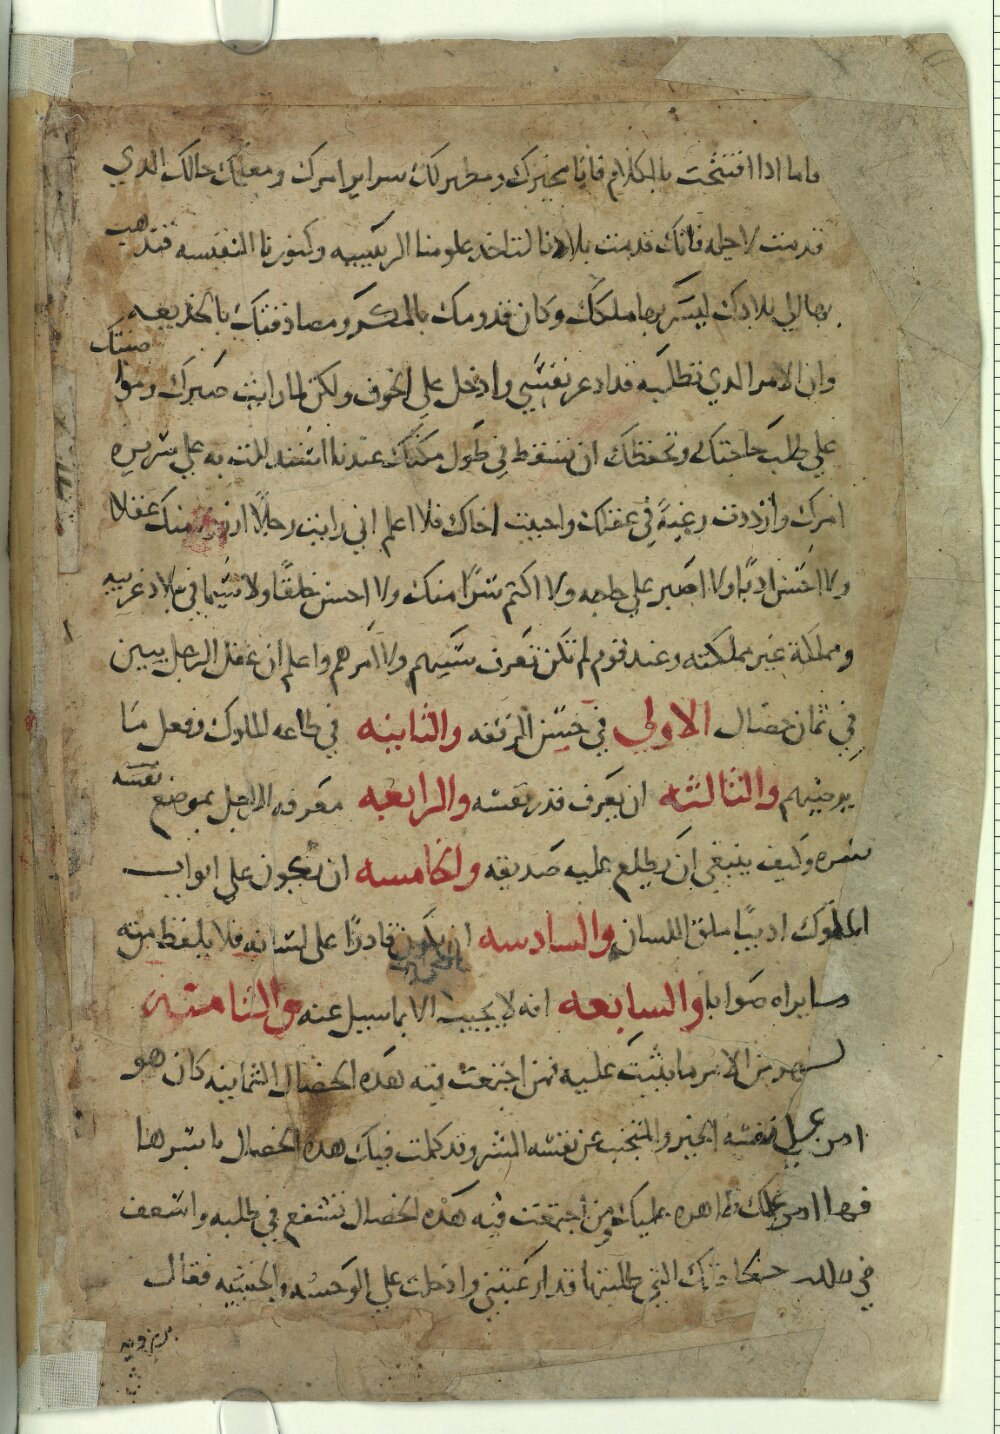 فاما اذا افتتحت بالكلام فانا مخبرك ومظهر لك سراير امرك ومعلمك حالك الذي
قدمت لاجله فانك قدمت بلادنا لتاخذ علومنا الرييسيه وكنوزنا النفيسه فتذهب
بها الي بلادك ليسر بها ملكك وكان قدومك بالمكر ومصادقتك بالخديعه
وان الامر الذي تطلبه قد اذعر نفسي وادخل علي الخوف ولكن لما رايت صبرك ومواضبتك
علي طلب حاجتك وتحفظك ان تسقط في طول مكثك عندنا استدللت به علي سريره
امرك وازددت رغبة في عقلك واحببت اخاك فلا اعلم اني رايت رجلا ارزن منك عقلا
ولا احسن ادبا ولا اصبر علي حاجه ولا اكتم سرا منك ولا احسن خلقا ولا سيما في بلاد غريبه
ومملكة غير مملكته وعند قوم لم تكن تعرف سنتهم ولا امرهم واعلم ان عقل الرجل يبين
في ثمان خصال الاولي في حسن الرفقه والثانيه في طاعه الملوك وفعل ما
يرضيهم والثالثه ان يعرف قدر نفسه والرابعه معرفه الرجل بموضع نفسه
سره وكيف ينبغي ان يطلع عليه صديقه والخامسه ان يكون علي ابواب
الملوك اديبا ملق اللسان والسادسه ان يكون قادرا على لسانه فلا يلفظ منه
ما يراه صوابا والسابعه انه لا يجيب الا بما سييل عنه والثامنه
من الامر ما يثبت عليه فمن اجتمعت فيه هذه الخصال الثمانيه كان هو
نفسه الخير والمتجنب عن نفسه الشر وقد كملت فيك هذه الخصال باسرها
ظاهره عليك ومن اجتمعت فيه هذه الخصال تشفع في طلبه واسعف
في حاجتك التي طلبتها قد ارعبتني وادخلت علي الوحشه والخشيه فقال
برزويه